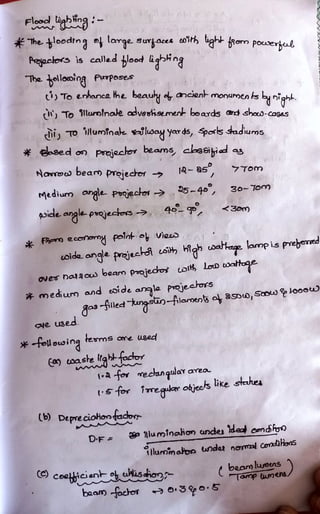 Flood Lighting :-
* The flooding of large surfaces with light from powerful
Projectors is called flood lighting
The following Purposes
(i) To enhance the beauty of ancient monuments by night.
(ii) To illuminate advertisement boards and show-cases
(iii) To illuminate railway yards, Sports stadiums
* Based on projector beams, classified as
Narrow beam projector → 12-25°, >70m
Medium angle projector → 25-40°, 30-70m
wide angle projectors → 40°-90°, <30m
* From economy point of view
wide angle projector with high wattage lamp is preferred
over narrow beam projector with low wattage
* medium and wide angle projectors
gas-filled tungstun-filaments of 250w, 500w & 1000w
are used.
* following terms are used
(a) waste light factor
1.2 for rectangular area
1.5 for irregular objects like statues
(b) Depreciation factor
D.F = illumination under ideal condition
illumination under normal conditions
(c) coefficient of utilisation:- ( beam lumens
lamp lumens )
beam factor → 0.3 to 0.5